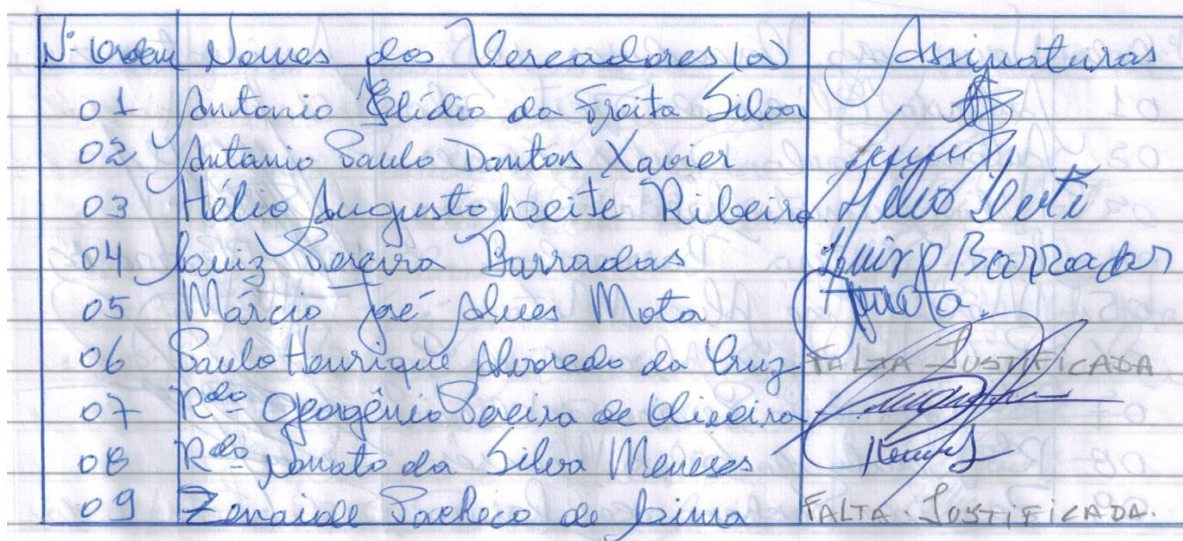 Nº Ordem Nomes dos Vereadores (a) Assinaturas
01 Antonio Elídio da Freita Silva
02 Antonio Paulo Dantas Xavier
03 Hélio Augusto Leite Ribeiro Hélio Leite
04 Luiz Pereira Barradas Luiz P Barradas
05 Márcio José Alves Mota Mota
06 Paulo Henrique Alvoredo da Cruz FALTA JUSTIFICADA
07 Rdo Georgênio Pereira de Oliveira
08 Rdo Nonato da Silva Meneses
09 Zenaide Pacheco de Lima FALTA JUSTIFICADA.